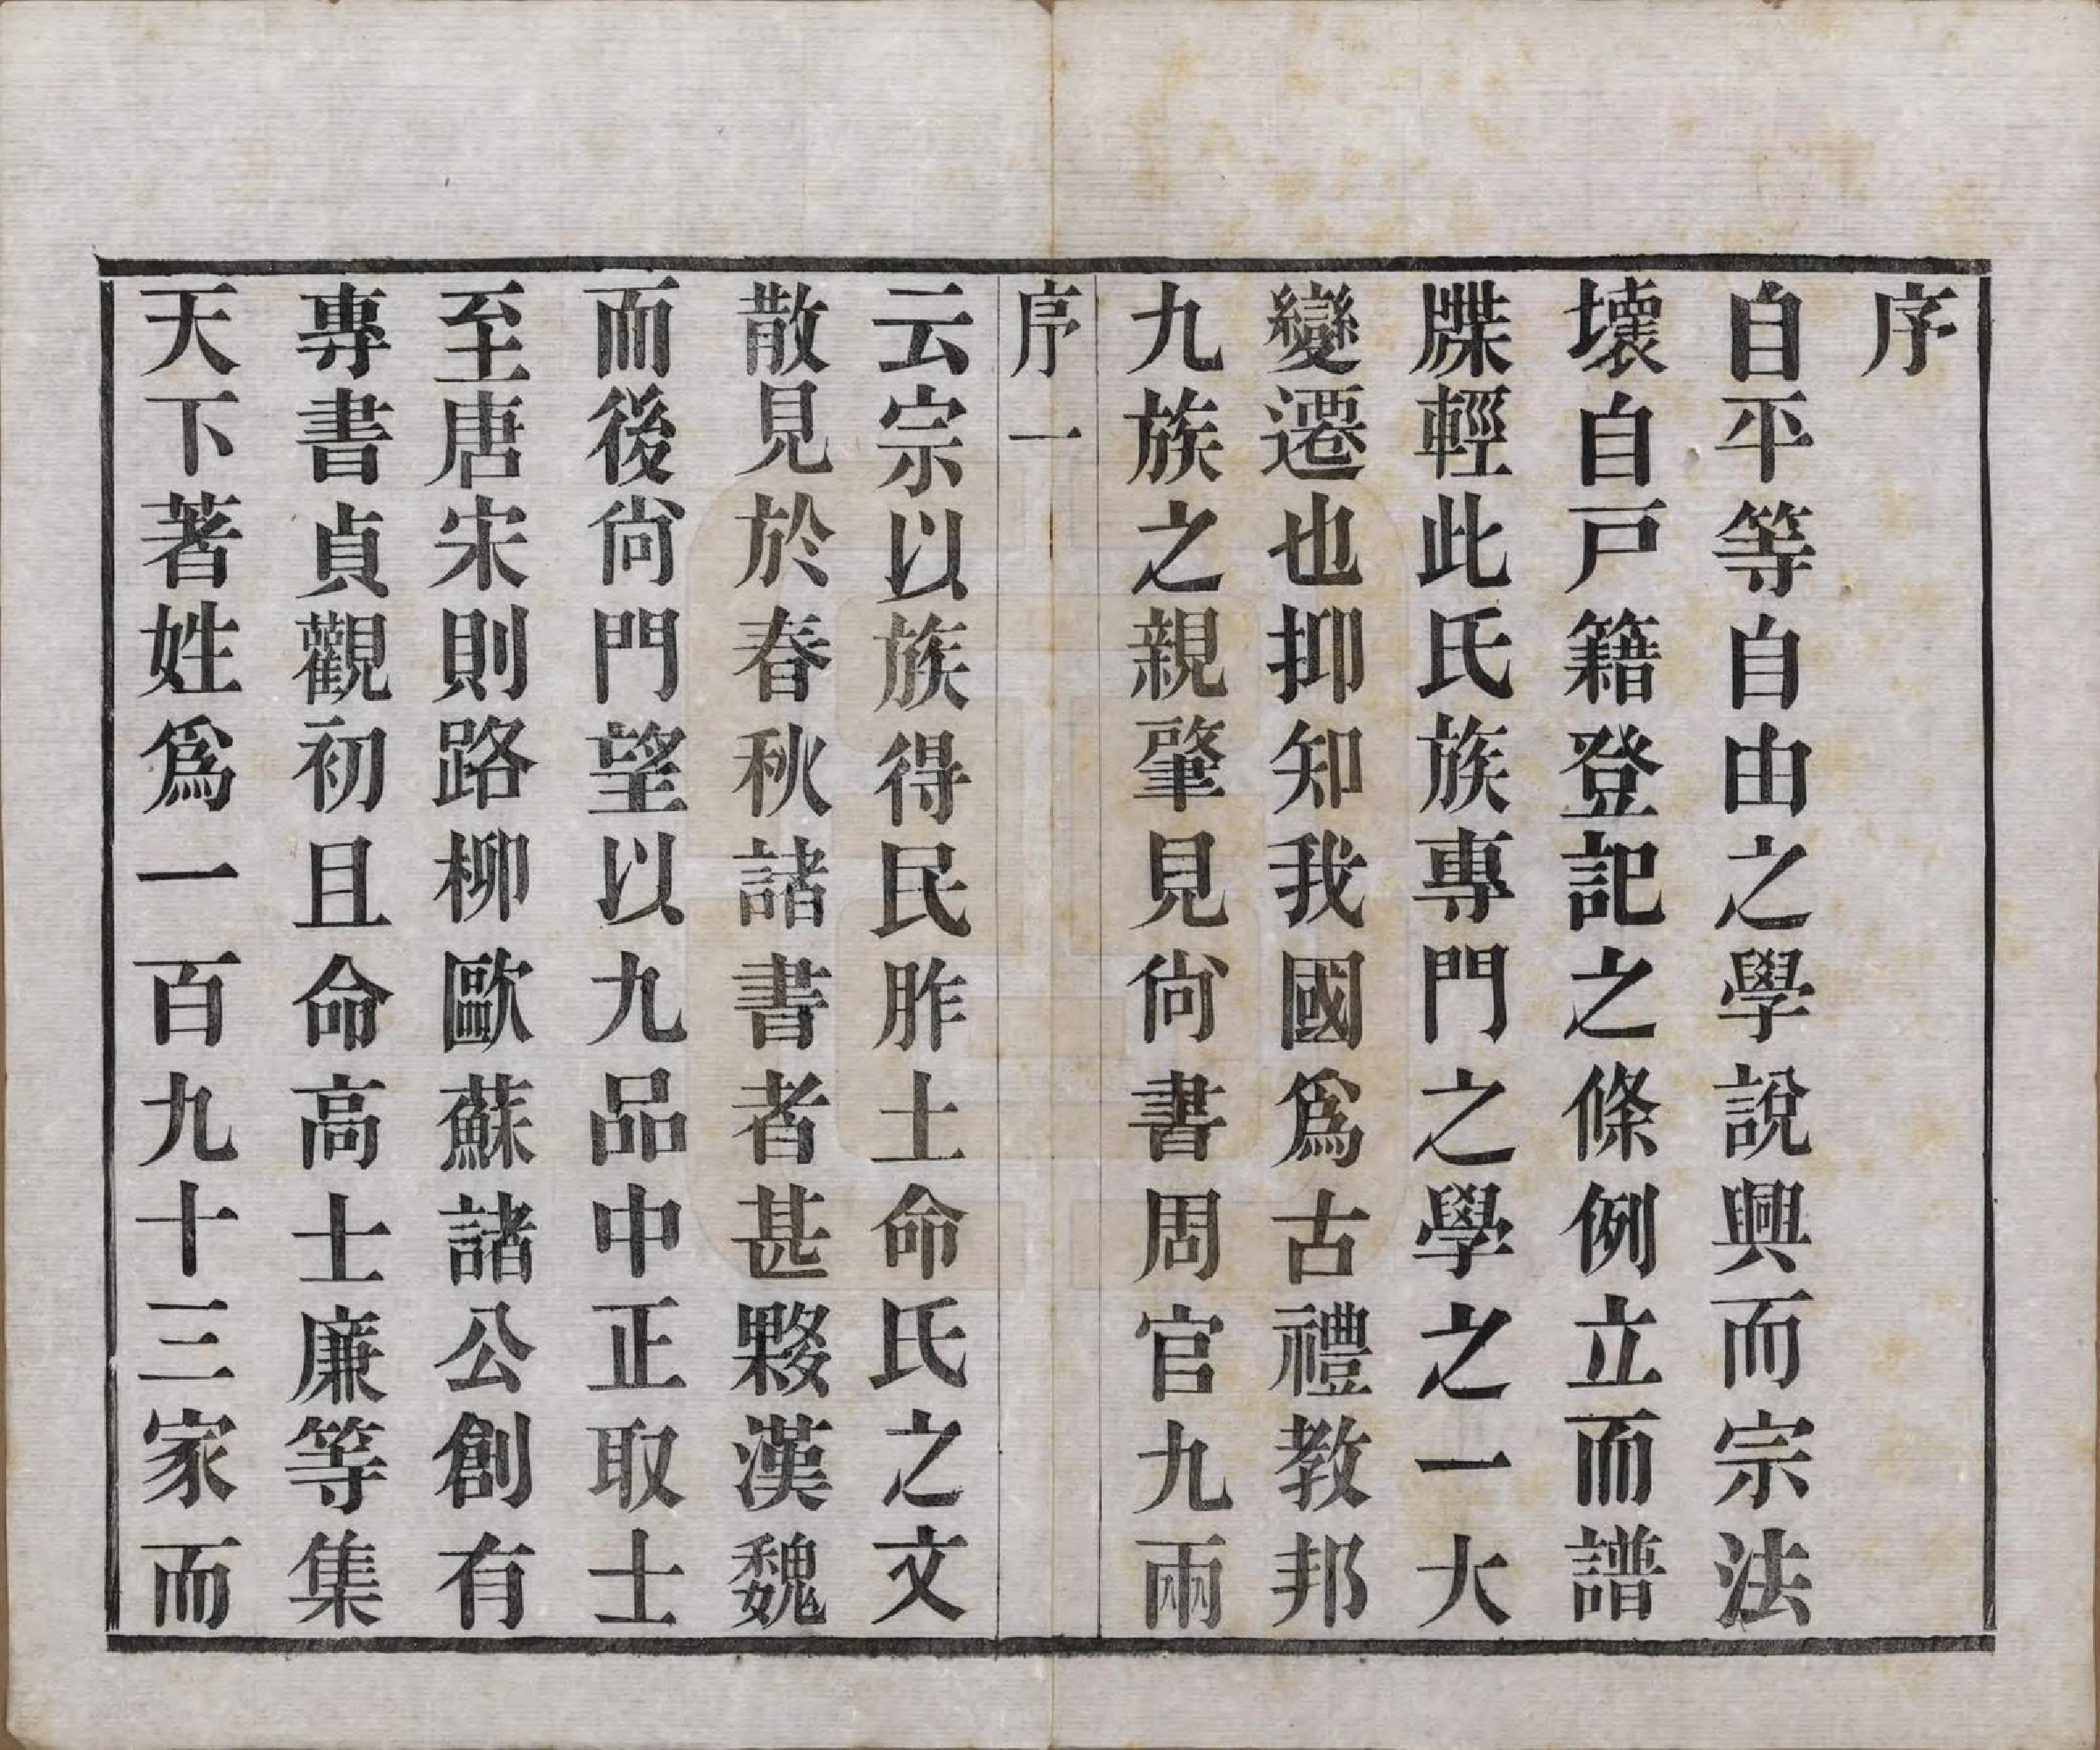 序
自平等自由之學說興而宗法
壞自戸籍登記之條例立而譜
牒輕此氏族專門之學之一大
變遷也抑知我國爲古禮教邦
九族之親肇見尙書周官九兩
序一
云宗以族得民胙土命氏之文
散見於春秋諸書者甚夥漢魏
而後尙門望以九品中正取士
至唐宋則路柳歐蘇諸公創有
專書貞觀初且命高士廉等集
天下著姓爲一百九十三家而